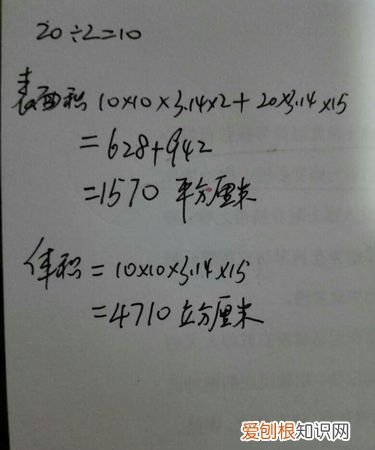 20÷2=10
表面积 10×10×3.14×2+20×3.14×15
=628+942
=1570 平方厘米
体积=10×10×3.14×15
=4710立方厘米
爱刨根知识网